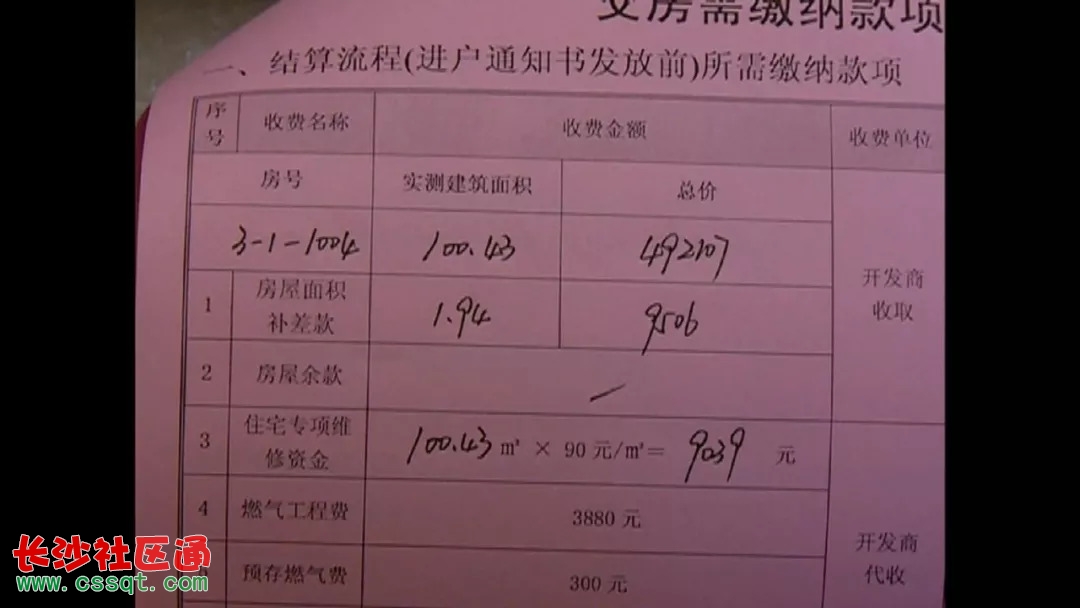 交房需缴纳款项
一、结算流程(进户通知书发放前)所需缴纳款项
序号 收费名称 收费金额 收费单位
房号 实测建筑面积 总价
3-1-1004 100.43 492107
开发商
收取
1 房屋面积
补差款 1.94 9506
2 房屋余款 /
3 住宅专项维
修资金 100.43 m² × 90 元/m²= 9039 元
4 燃气工程费 3880 元
开发商
代收
预存燃气费 300 元
长沙社区通
www.cssqt.com